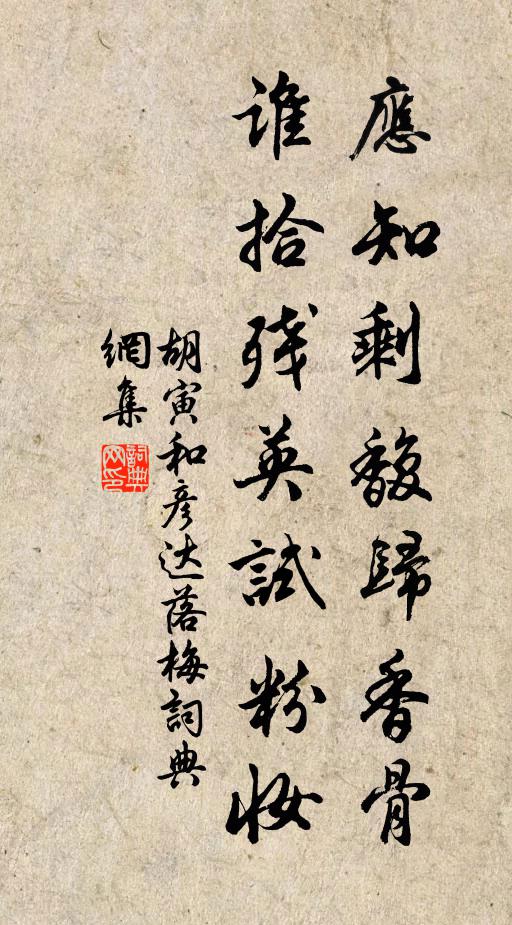 應知剩馥歸香骨
誰拾残英試粉妆
胡寅和彦达落梅詞典
網集
詞典网印